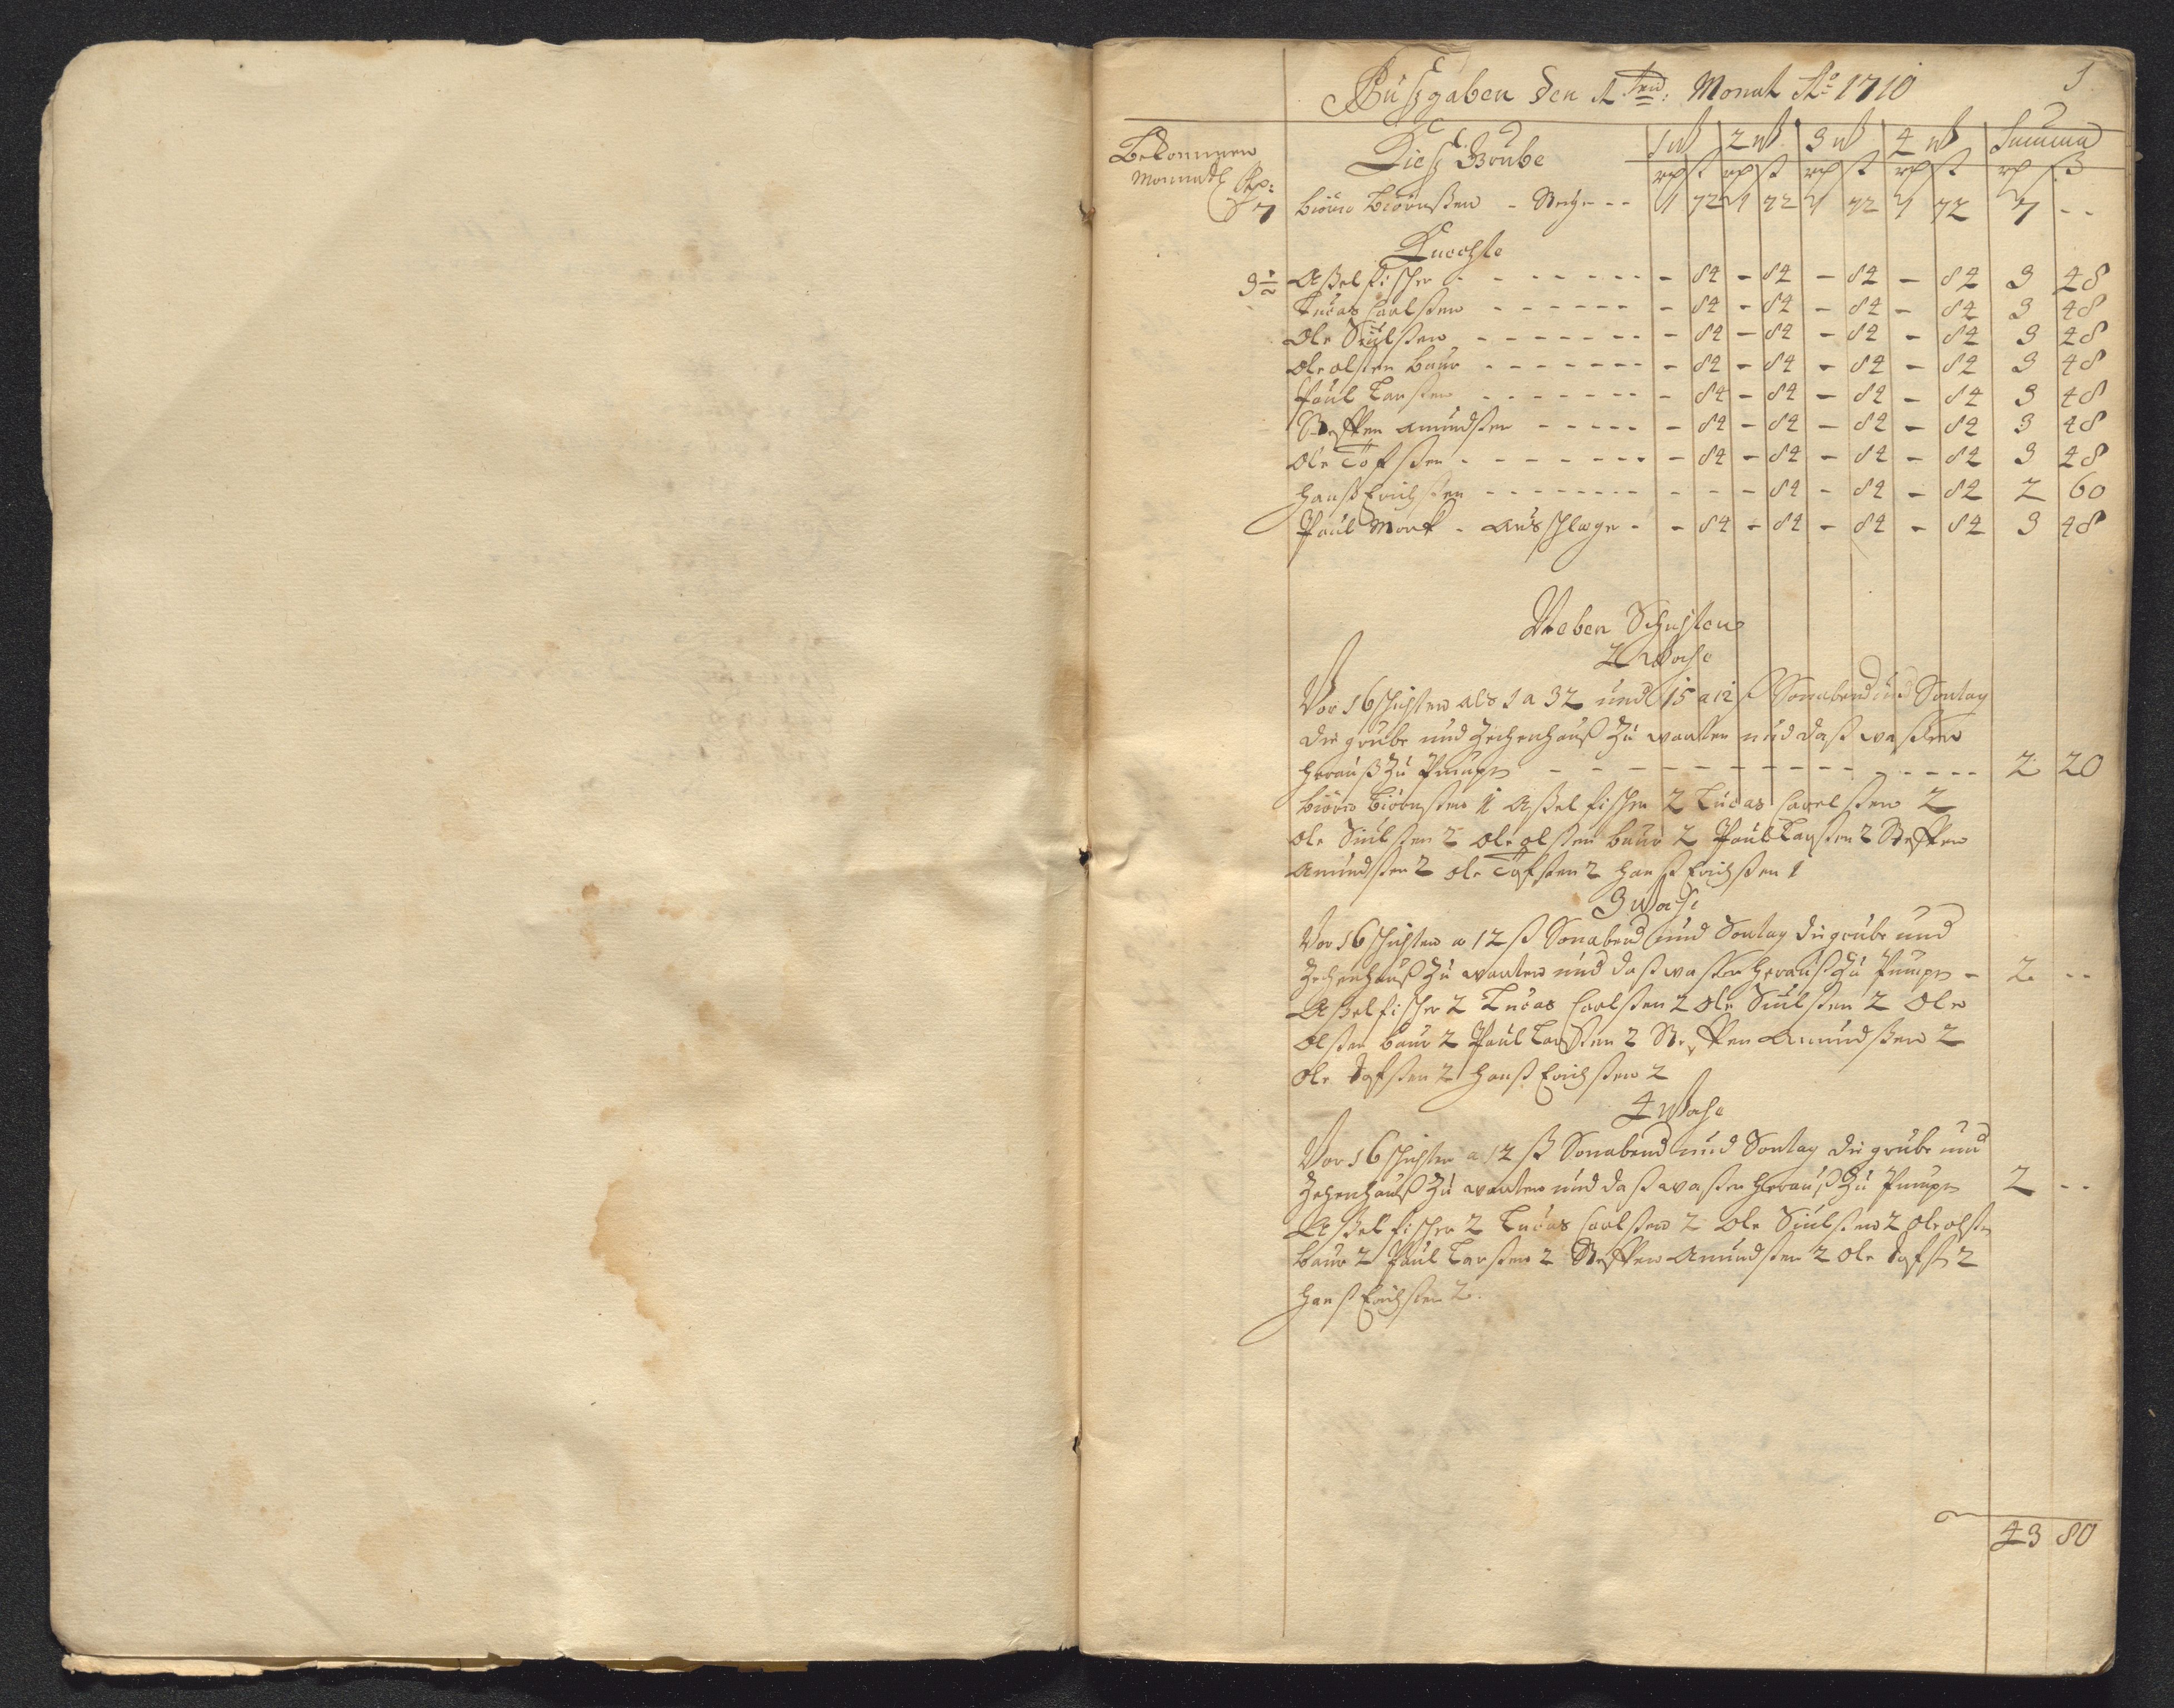 1
Außgaben den 1ten: Monat Ao 1710
Bekommen
Monnatl
Rp:
Dieß Grube
1 W 2 W 3 W 4 W Summa
rp ß rp ß rp ß rp ß rp ß
7 Biörn Biörnßen - Steiger - - 1 72 1 72 1 72 1 72 7 - -
Knechte
3 ½ Aßel fischer - 84 - 84 - 84 - 84 3 48
Lucas Carlßen - 84 - 84 - 84 - 84 3 48
Ole Siulßen - 84 - 84 - 84 - 84 3 48
Ole olßen baur - 84 - 84 - 84 - 84 3 48
Paul Larßen - 84 - 84 - 84 - 84 3 48
Steffen Amundßen - 84 - 84 - 84 - 84 3 48
Ole Tofßen - 84 - 84 - 84 - 84 3 48
Hanß Erichßen - - - 84 - 84 - 84 2 60
Paul Mork - Ausschlager - - 84 - 84 - 84 - 84 3 48
Neben Schichten
2 Woche
Vor 16 schichten als 1 a 32 und 15 a 12 ß Sonabend und Sontag
die grube und Zechenhauß Zu warten und daß waßer
herauß Zu Pumpen - - - 2 20
biörn Biörnßen 1 Aßel fischer 2 Lucas Carlßen 2
Ole Siulßen 2 Ole olßen baur 2 Paul Larßen 2 Steffen
Amundßen 2 ole Tofßen 2 Hanß Erichßen 1
3 Woche
Vor 16 schichten a 12 ß Sonabend und Sontag die grube und
Zechenhauß Zu warten und daß waßer herauß Zu Pumpen - 2 - -
Aßel fischer 2 Lucas Carlßen 2 Ole Siulßen 2 Ole
Olßen baur 2 Paul Larßen 2 Steffen Amundßen 2
Ole Tofßen 2 Hanß Erichßen 2
4 Woche
Vor 16 schichten a 12 ß Sonabend und Sontag die grube und
Zechenhauß Zu warten und daß waßer herauß Zu Pumpen 2 - -
Aßel fischer 2 Lucas Carlßen 2 Ole Siulßen 2 Ole olßen
baur 2 Paul Larßen 2 Steffen Amundßen 2 Ole Tofßen 2
Hanß Erichßen 2.
43 80